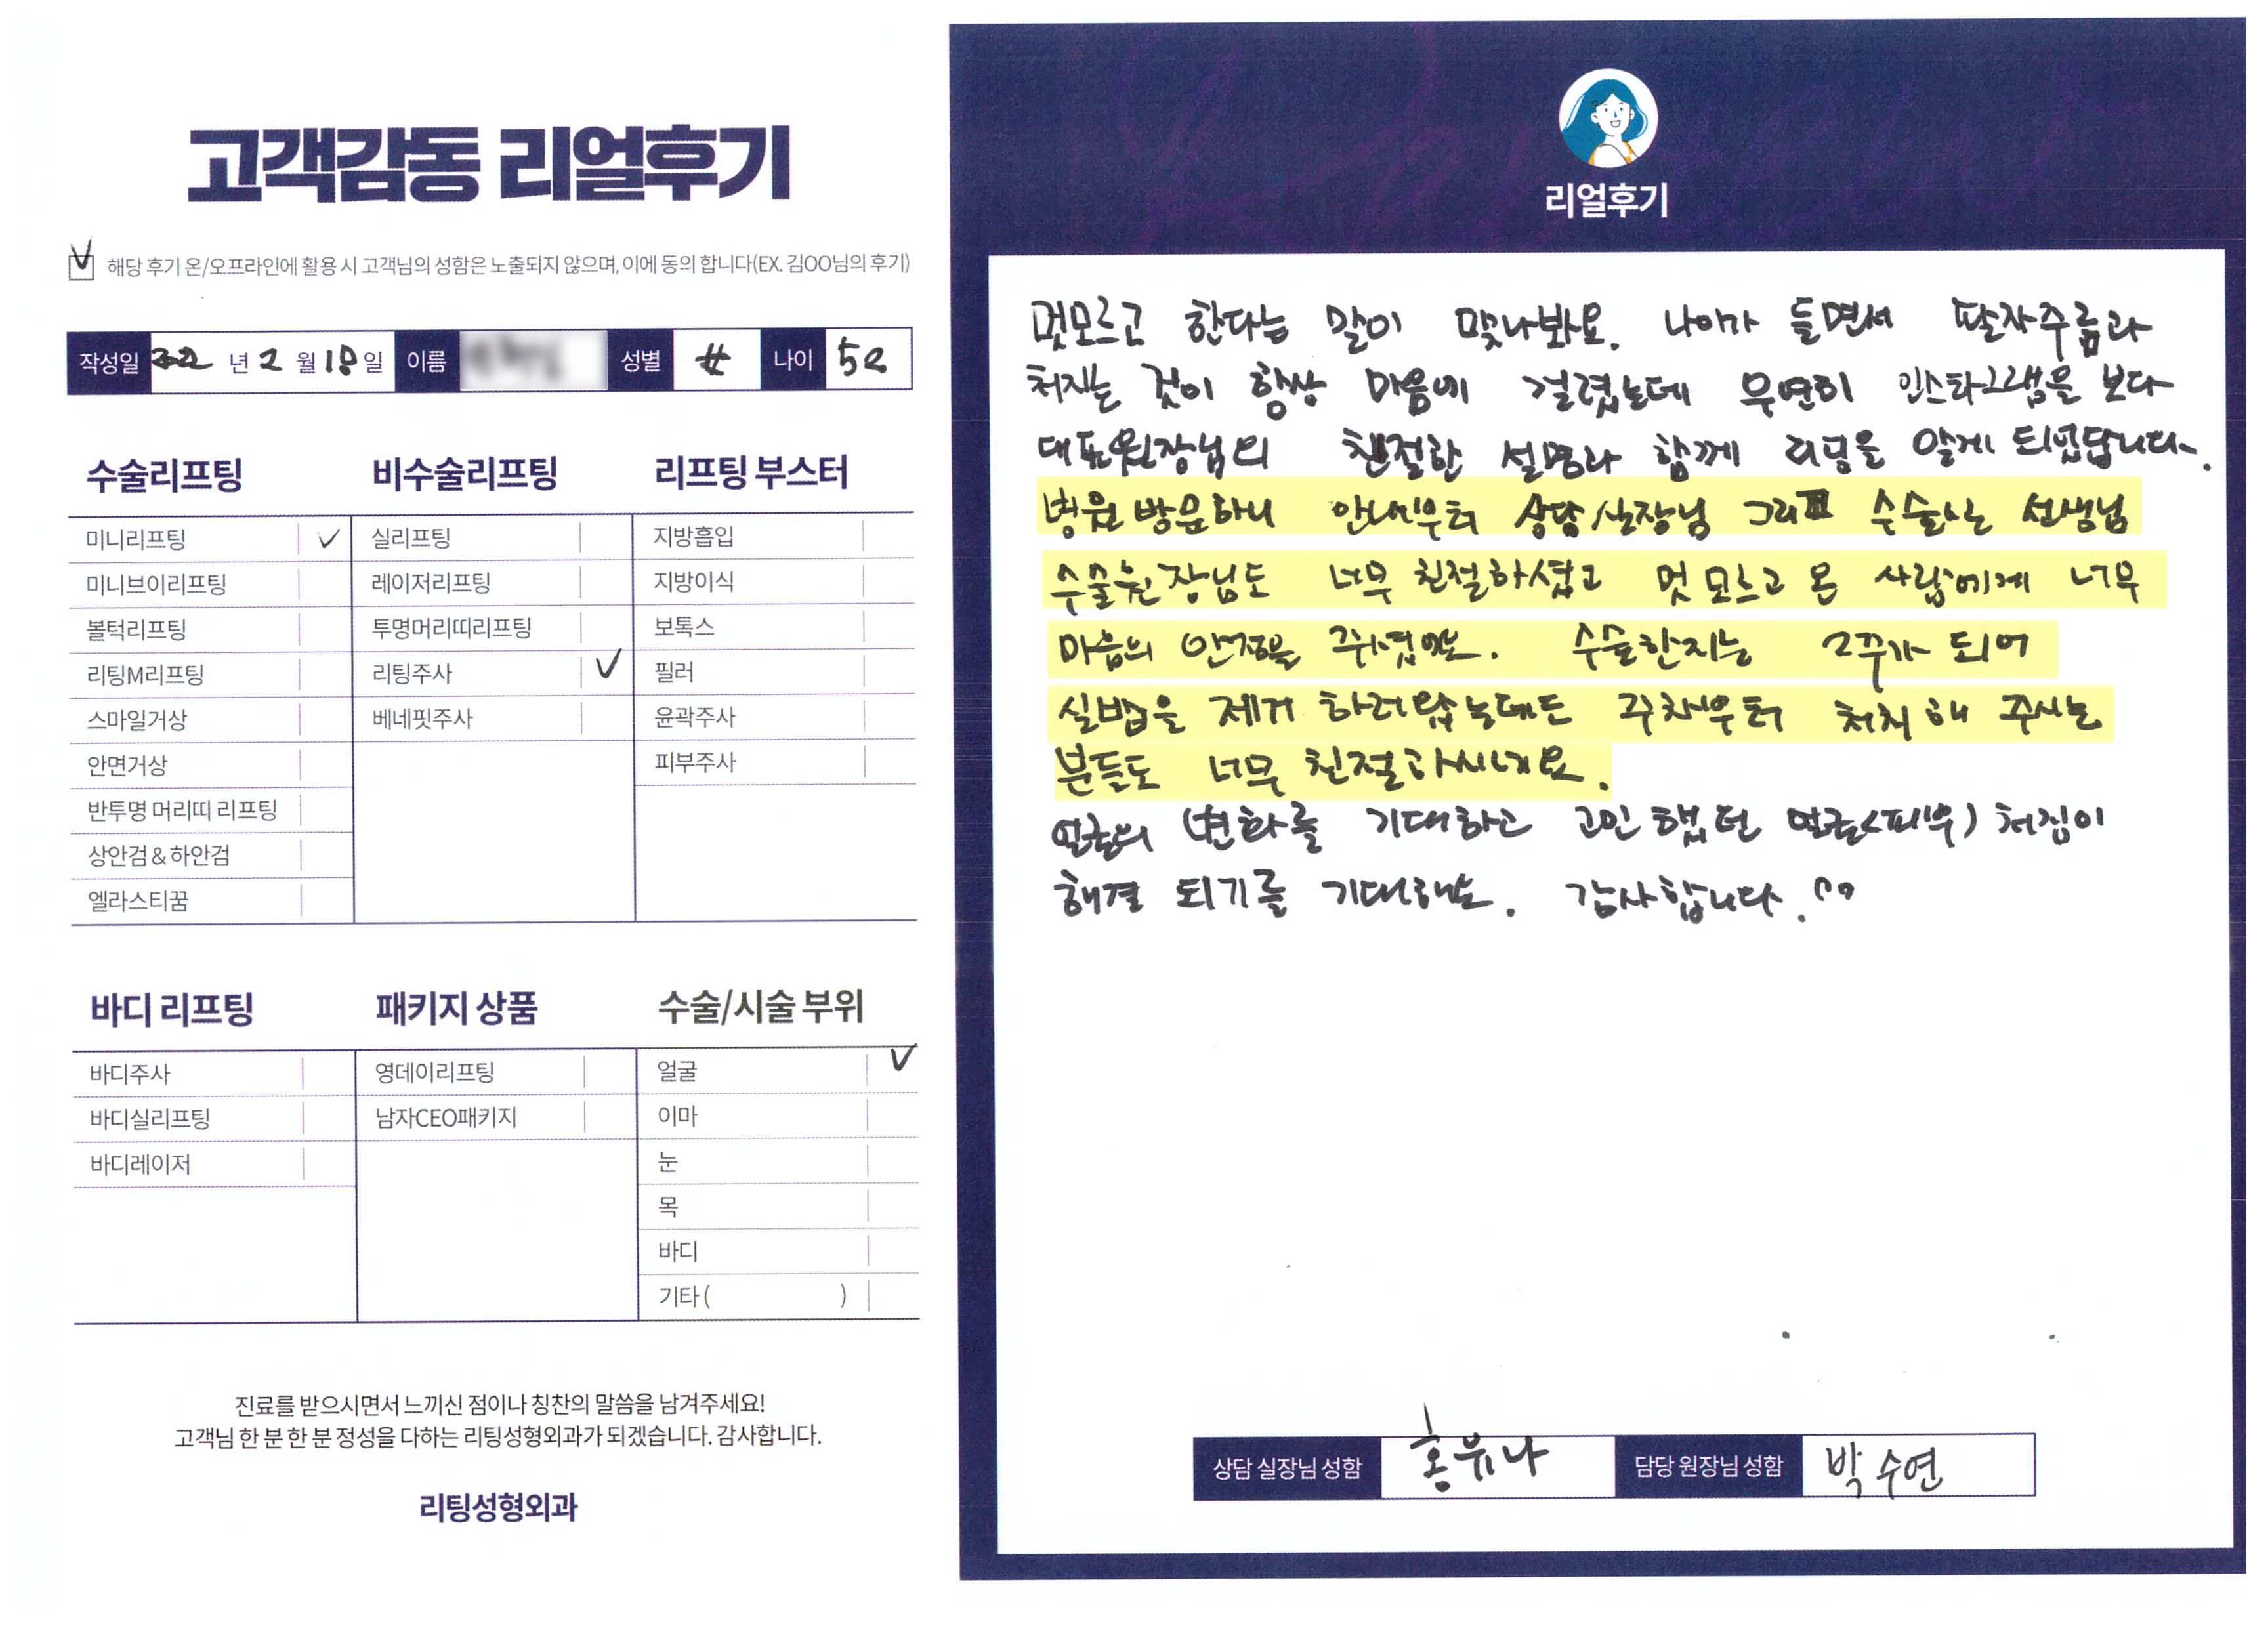 고객감동 리얼후기
해당 후기 온/오프라인에 활용 시 고객님의 성함은 노출되지 않으며, 이에 동의 합니다(EX. 김OO님의 후기)
작성일 22 년 2 월 18 일 이름 성별 나이 52
수술리프팅
미니리프팅
미니브이리프팅
볼턱리프팅
리팅M리프팅
스마일거상
안면거상
반투명 머리띠 리프팅
상안검 & 하안검
엘라스티꿈
비수술리프팅
실리프팅
레이저리프팅
투명머리띠리프팅
리팅주사
베네핏주사
리프팅 부스터
지방흡입
지방이식
보톡스
필러
윤곽주사
피부주사
바디 리프팅
바디주사
바디실리프팅
바디레이저
패키지 상품
영데이리프팅
남자CEO패키지
수술/시술 부위
얼굴
이마
눈
목
바디
기타 ( )
진료를 받으시면서 느끼신 점이나 칭찬의 말씀을 남겨주세요!
고객님 한 분 한 분 정성을 다하는 리팅성형외과가 되겠습니다. 감사합니다.
리팅성형외과
리얼후기
멋모르고 한다는 말이 맞나봐요. 나이가 들면서 팔자주름과
처지는 것이 항상 마음에 걸렸는데 우연히 인스타그램을 보다
대표원장님의 친절한 설명과 함께 리팅을 알게 되었답니다.
병원 방문하니 안내부터 상담실장님 그리고 수술실 선생님
수술원장님도 너무 친절하셨고 멋 모르고 온 사람에게 너무
마음의 안정을 주셨어요. 수술한지는 2주가 되어
실밥을 제거 하러왔는데도 주차부터 처치해 주시는
분들도 너무 친절하시네요.
얼굴의 변화를 기대하고 고민했던 얼굴(피부) 처짐이
해결 되기를 기대해요. 감사합니다. ^^
상담 실장님 성함 홍유나 담당 원장님 성함 박수연